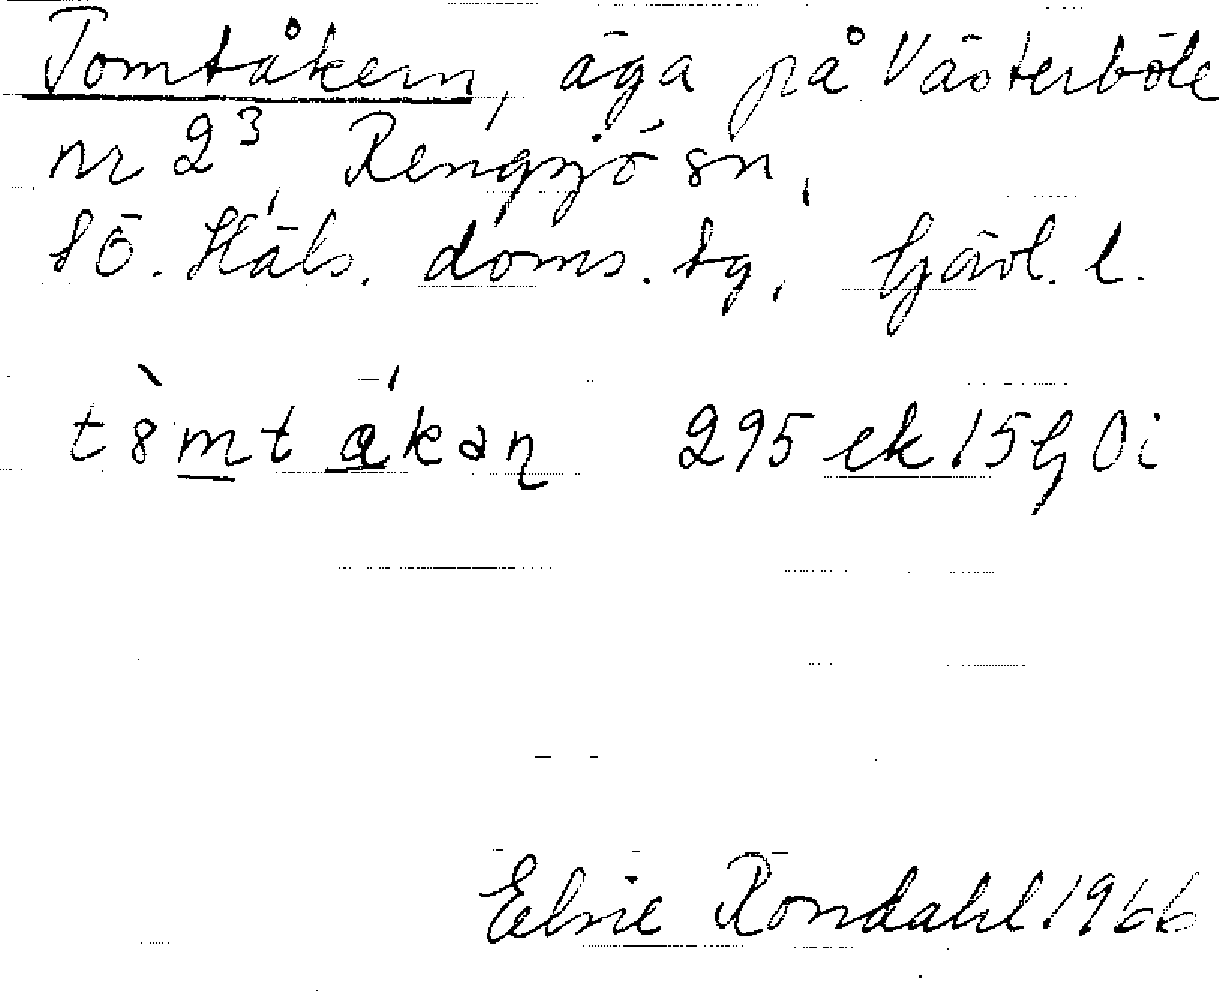 Tomtåkern, äga på Västerböle
nr 2³, Rengsjö sn,
SÖ. Häls. doms. tg, Gävl. l.
tòmtákan 295 ek 15 G Oi
Elsie Rondahl 1966